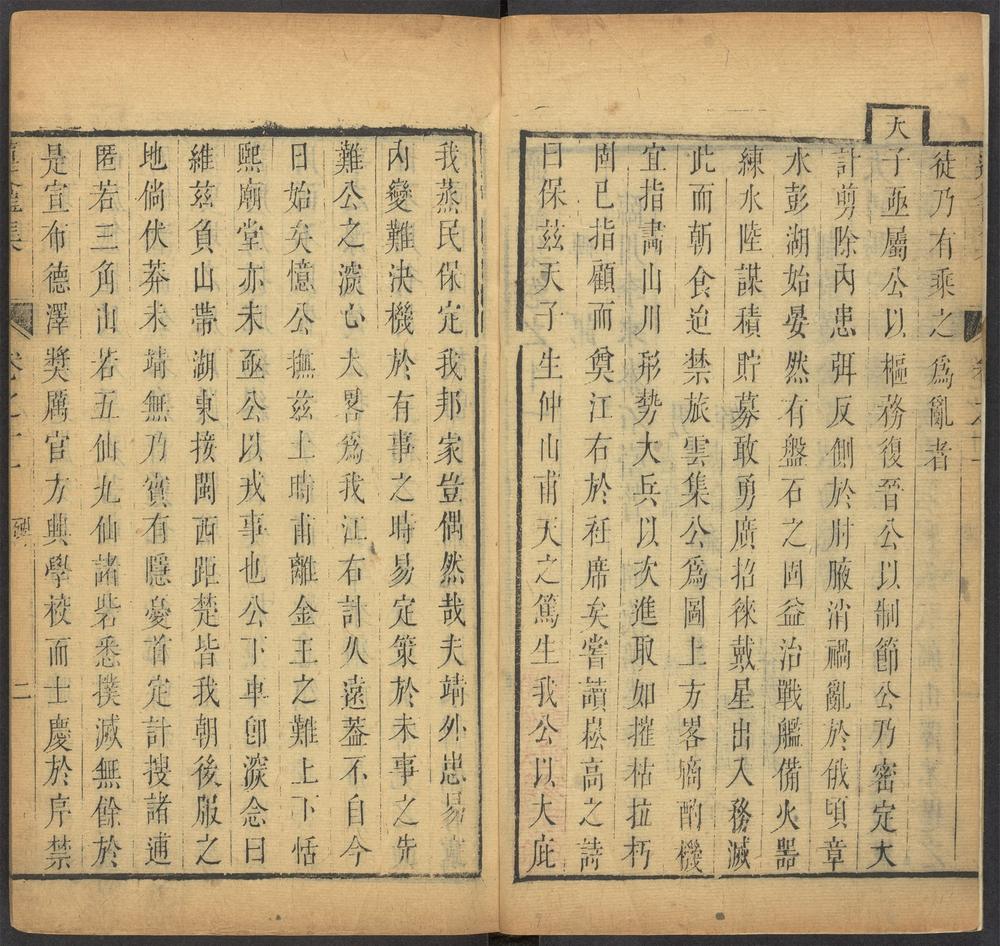 徒乃有乘之爲亂者
天
子亟屬公以樞務復晉公以制節公乃密定大
計剪除內患弭反側於肘腋消禍亂於俄頃章
水彭湖始晏然有盤石之固益治戰艦備火器
練水陸謀積貯募敢勇廣招徠戴星出入務滅
此而朝食迫禁旅雲集公爲圖上方畧商酌機
宜指畵山川形勢大兵以次進取如摧枯拉朽
固已指顧而奠江右於袵席矣嘗讀崧高之詩
曰保茲天子生仲山甫天之篤生我公以大庇
我蒸民保定我邦家豈偶然哉夫靖外患易寘
內變難決機於有事之時易定策於未事之先
難公之深心大畧爲我江右計久遠葢不自今
日始矣憶公撫茲土時甫離金王之難上下恬
熙廟堂亦未亟公以戎事也公下車卽深念曰
維茲負山帶湖東接閩西距楚皆我朝後服之
地倘伏莽未靖無乃實有隱憂首定計搜諸逋
匿若三角山若五仙九仙諸砦悉撲滅無餘於
是宣布德澤獎厲官方興學校而士慶於序禁
集
卷之
二